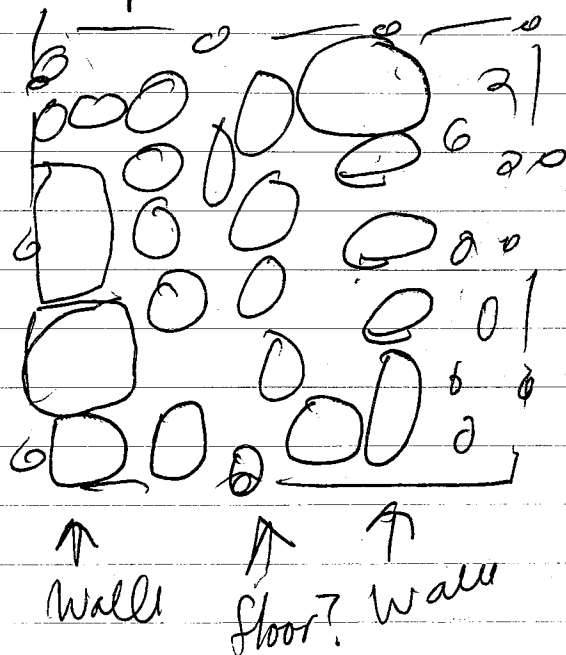 Wall floor? Wall